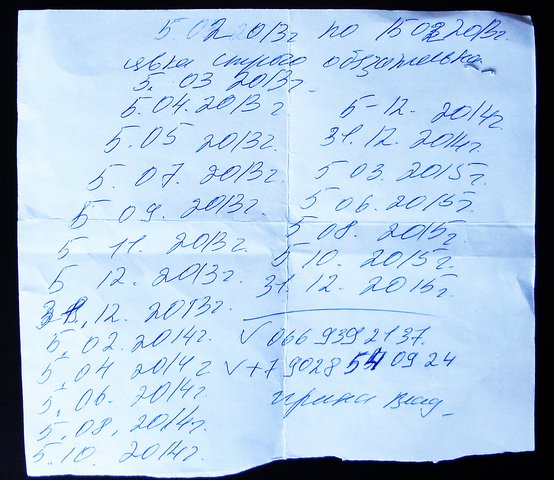 5.02 2013г по 15 02 2013г.
явка строго обязательна
5. 03 2013г.
5.04. 2013г
5.05 2013г.
5. 07. 2013г.
5 09. 2013г.
5 11. 2013г.
5 12. 2013г.
31. 12. 2013г.
5. 02 2014г.
5. 04 2014г
5. 06. 2014г.
5. 08. 2014г.
5. 10. 2014г.
5-12. 2014г.
31. 12. 2014г.
5 03. 2015г.
5 06. 2015г.
5 08. 2015г.
5 10. 2015г.
31. 12. 2015г.
✓ 066 939 21 37.
✓ +7 9028 54 09 24
Ирина Влад.